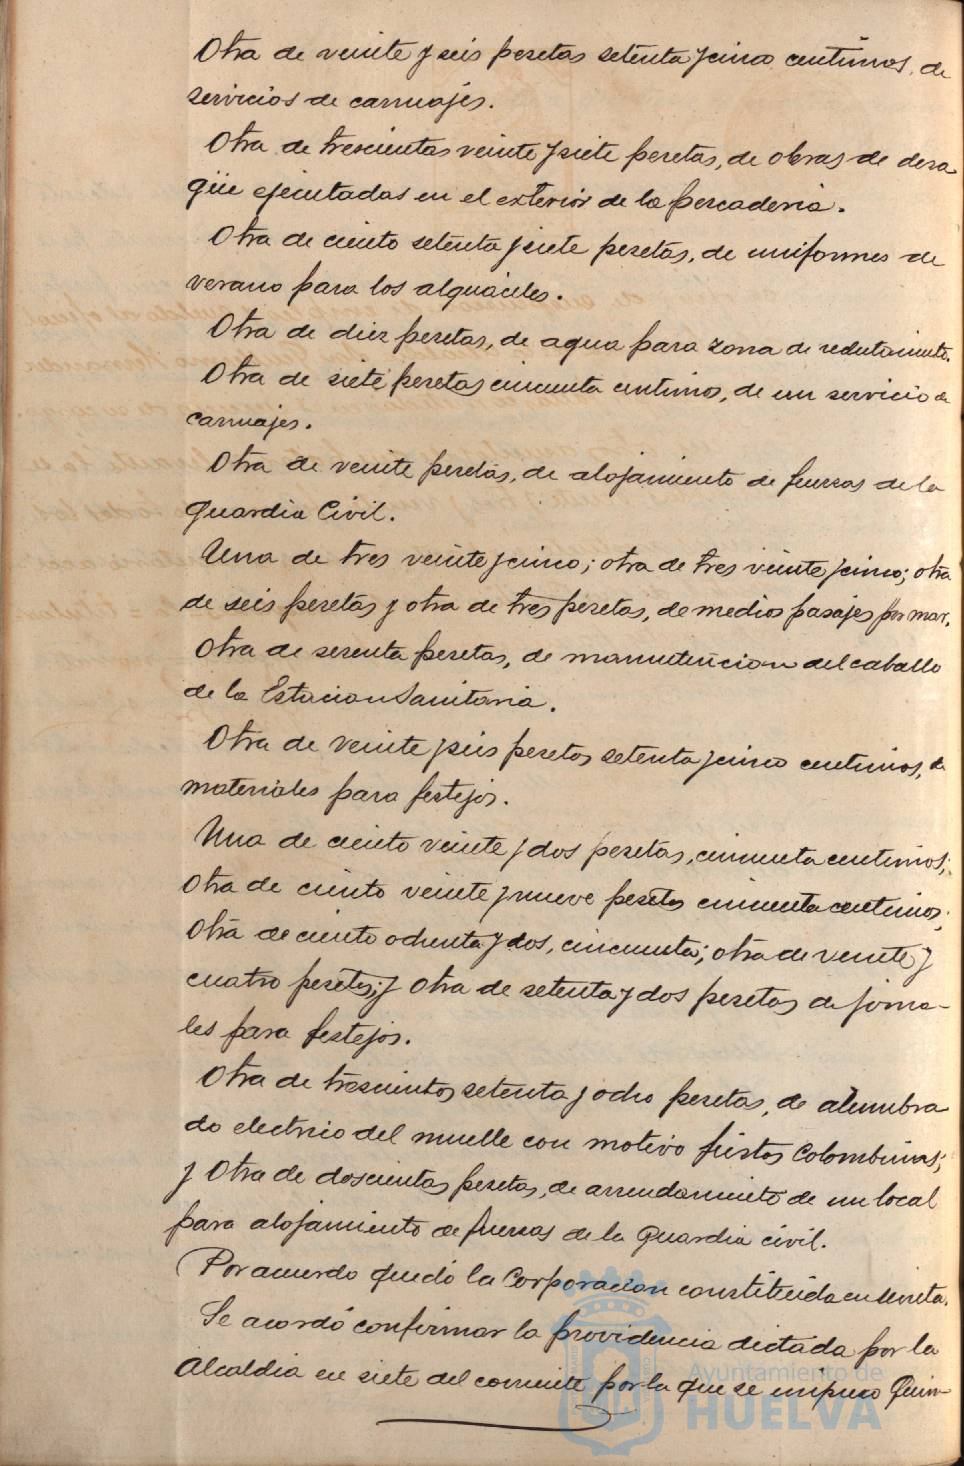 Otra de veinte y seis pesetas setenta y cinco centimos, de
servicios de carruajes.
Otra de trescientas veinte y siete pesetas, de obras de desa
güe ejecutadas en el exterior de la pescaderia.
Otra de ciento setenta y siete pesetas, de uniformes de
verano para los alguaciles.
Otra de diez pesetas, de agua para zona de reclutamiento.
Otra de siete pesetas cincuenta centimos, de un servicio de
carruajes.
Otra de veinte pesetas, de alojamiento de fuerzas de la
Guardia Civil.
Una de tres veinte y cinco; otra de tres veinte y cinco; otra
de seis pesetas y otra de tres pesetas, de medios pasajes por mar.
Otra de sesenta pesetas, de manutencion del caballo
de la Estacion Sanitaria.
Otra de veinte y seis pesetas setenta y cinco centimos, de
materiales para festejos.
Una de ciento veinte y dos pesetas, cincuenta centimos;
Otra de ciento veinte y nueve pesetas cincuenta centimos;
Otra de ciento ochenta y dos, cincuenta; otra de veinte y
cuatro pesetas; y otra de setenta y dos pesetas de jorna-
les para festejos.
Otra de trescientos setenta y ocho pesetas, de alumbra
do electrico del muelle con motivo fiestas Colombinas;
y Otra de doscientas pesetas, de arrendamiento de un local
para alojamiento de fuerzas de la Guardia civil.
Por acuerdo quedó la Corporacion constituida en secreta.
Se acordó confirmar la providencia dictada por la
Alcaldia en siete del corriente por la que se impuso Quin-
Ayuntamiento de
HUELVA